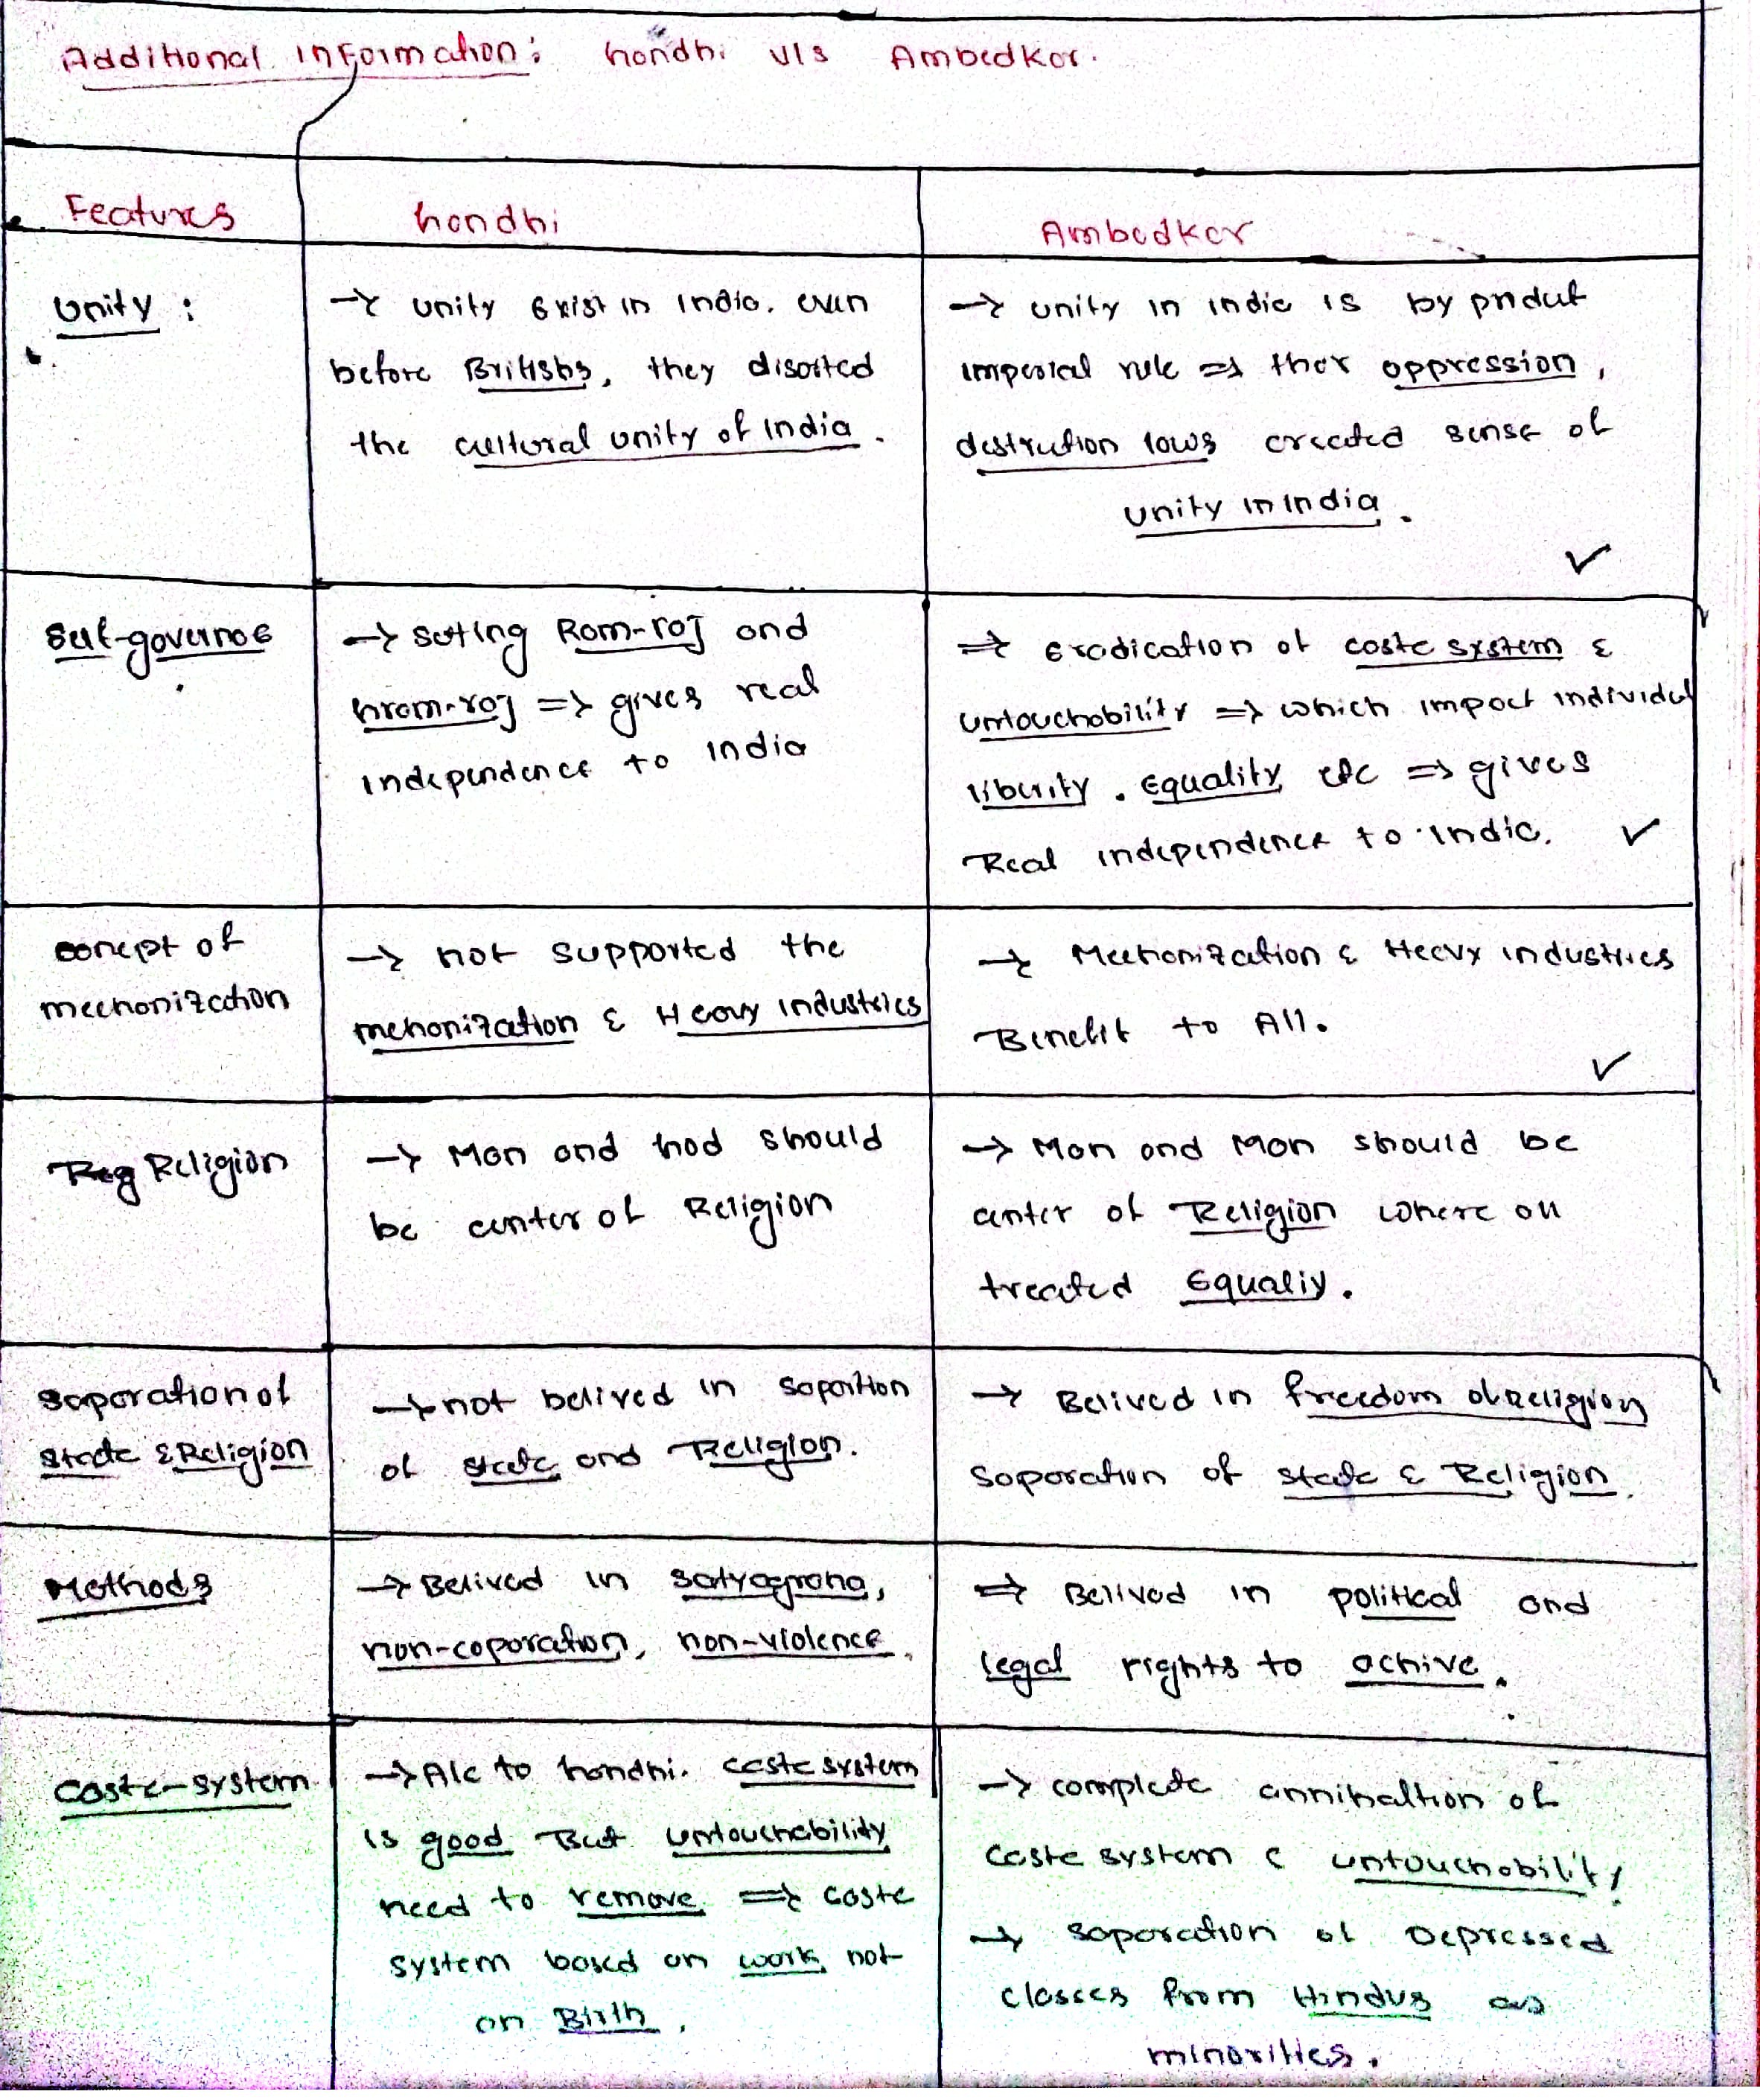 Additional information: Gandhi v/s Ambedkar.
Features
Gandhi
Ambedkar
Unity :
→ unity Exist in India. even
before Britishs, they disorted
the cultural unity of India.
→ unity in india is by
imperial rule ⇒ ther oppression,
destrution laws created sense of
unity in india.
✓
Self-governce
→ setting Ram-raj and
Gram-raj ⇒ gives real
independence to india
⇒ Eradication of caste system &
untouchability ⇒ which impact individul
liberity, Equality etc ⇒ gives
Real independence to india.
✓
concept of
mechanization
→ not supported the
mehanization & Heavy industries
→ Mechanization & Heavy industries
Benefit to All.
✓
Reg Religion
→ Man and God should
be center of Religion
→ Man and Man should be
center of Religion where all
treated Equaliy.
Saparation of
state & Religion
→ not belived in sapartion
of state and Religion.
→ Belived in freedom of Religion
saparation of state & Religion.
Methods
→ Belived in satyagraha,
non-coporation, non-violence.
⇒ Belived in political and
legal rights to achive.
Caste-system
→ Alc to Gandhi. caste system
is good But untouchability
need to remove ⇒ caste
system based on work not
on Birth.
→ complete annihaltion of
caste system & untouchability
→ saparation of Depressed
classes from Hindus as
minorities.